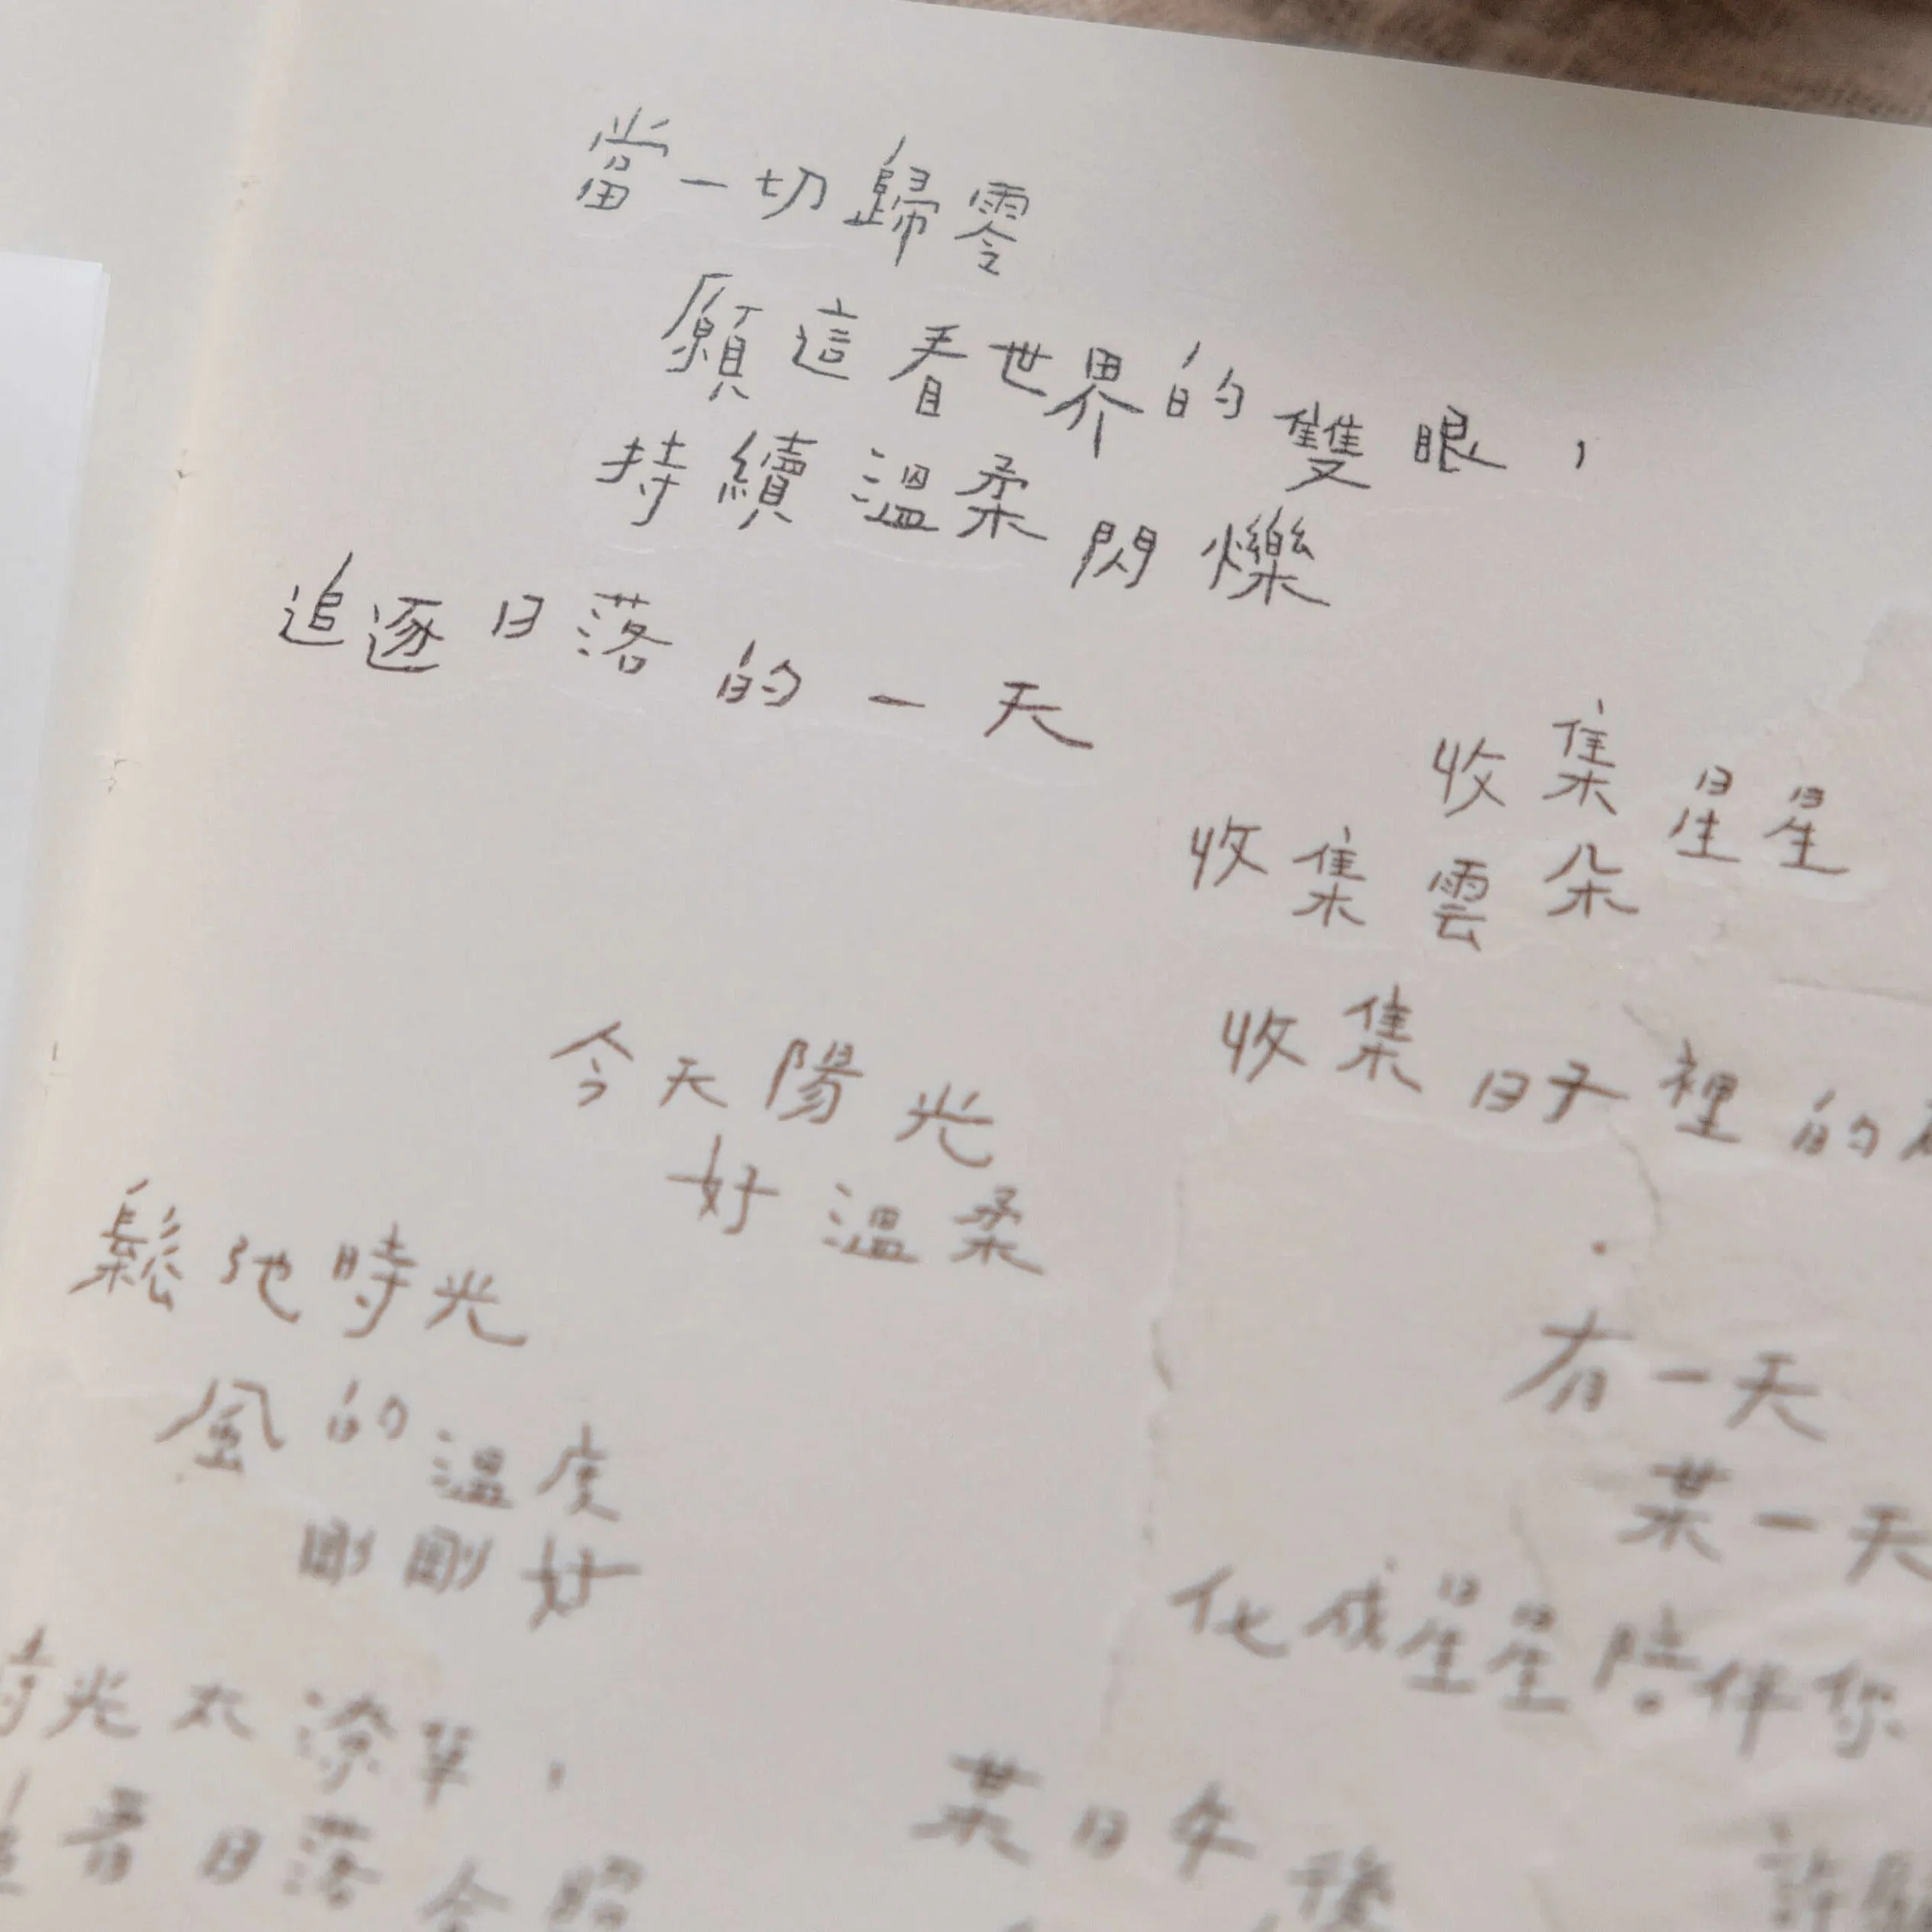 當一切歸零
願這看世界的雙眼，
持續溫柔閃爍
追逐日落的一天
收集星星
收集雲朵
收集日子裡的
今天陽光
好溫柔
鬆弛時光
風的溫度
剛剛好
有一天
某一天
化成星星陪伴你
時光太潦草，
著日落余照
某日午後
許願